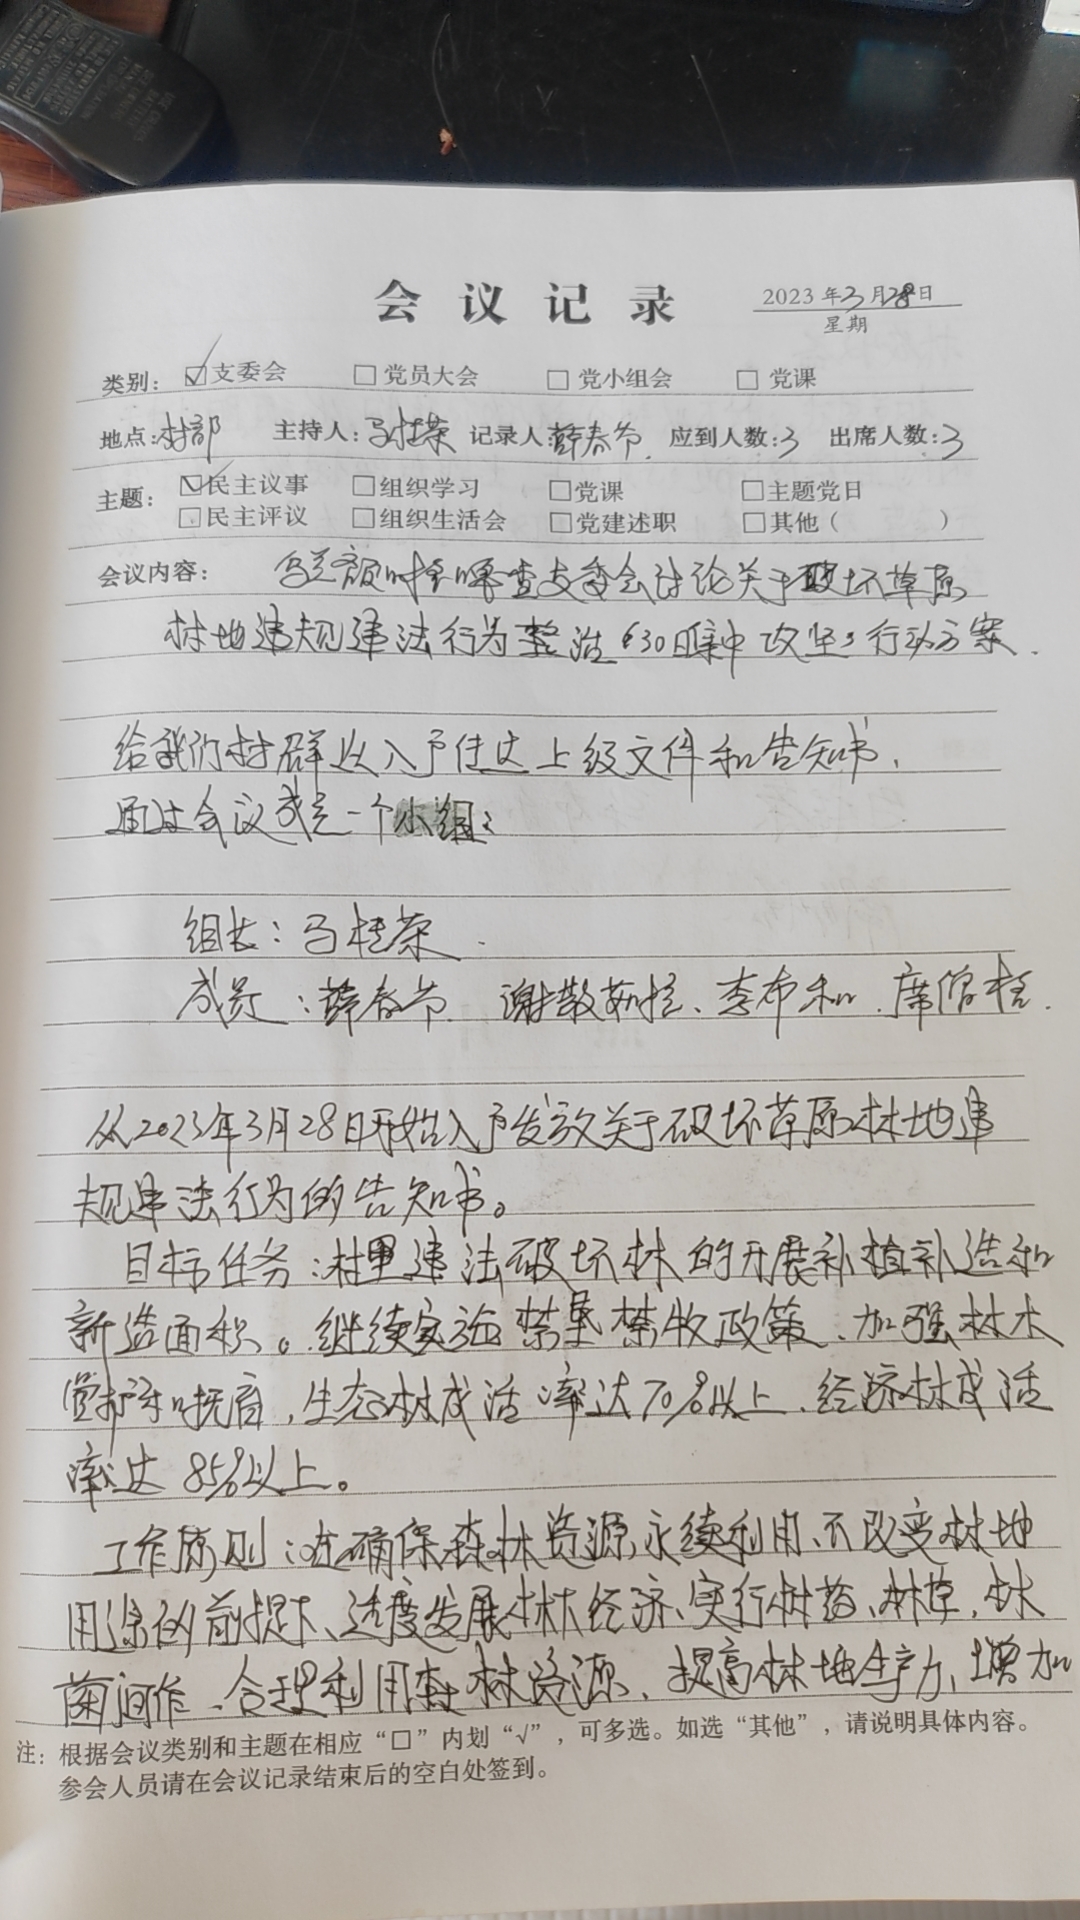 会议记录
2023年3月28日
星期
类别: ☑支委会 □党员大会 □党小组会 □党课
地点:村部 主持人:马桂荣 记录人:薛春节. 应到人数:3 出席人数:3
主题: ☑民主议事 □组织学习 □党课 □主题党日
□民主评议 □组织生活会 □党建述职 □其他( )
会议内容: 乌兰额日格嘎查支委会讨论关于破坏草原
林地违规违法行为整治“30日集中攻坚”行动方案.
给我们村群众入户传达上级文件和告知书,
通过会议成立一个小组:
组长:马桂荣.
成员:薛春节、谢散 、李布和、席 桩.
从2023年3月28日开始入户发放关于破坏草原林地违
规违法行为的告知书。
目标任务:村里违法破坏林的开展补植补造和
新造面积。继续实施禁垦禁牧政策、加强林木
管护和抚育,生态林成活率达70%以上、经济林成活
率达85%以上。
工作原则:在确保森林资源永续利用、不改变林地
用途的前提下、适度发展林下经济、实行林药、林草,林
菌间作、合理利用森林资源、提高林地生产力、增加
注:根据会议类别和主题在相应“□”内划“√”,可多选。如选“其他”,请说明具体内容。
参会人员请在会议记录结束后的空白处签到。